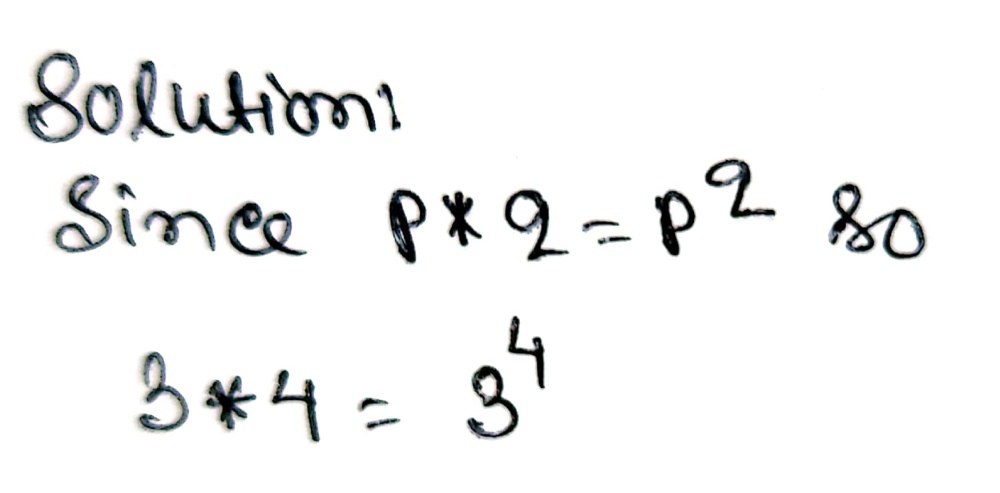 Solution:
Since p * q = p^q so
3 * 4 = 3^4